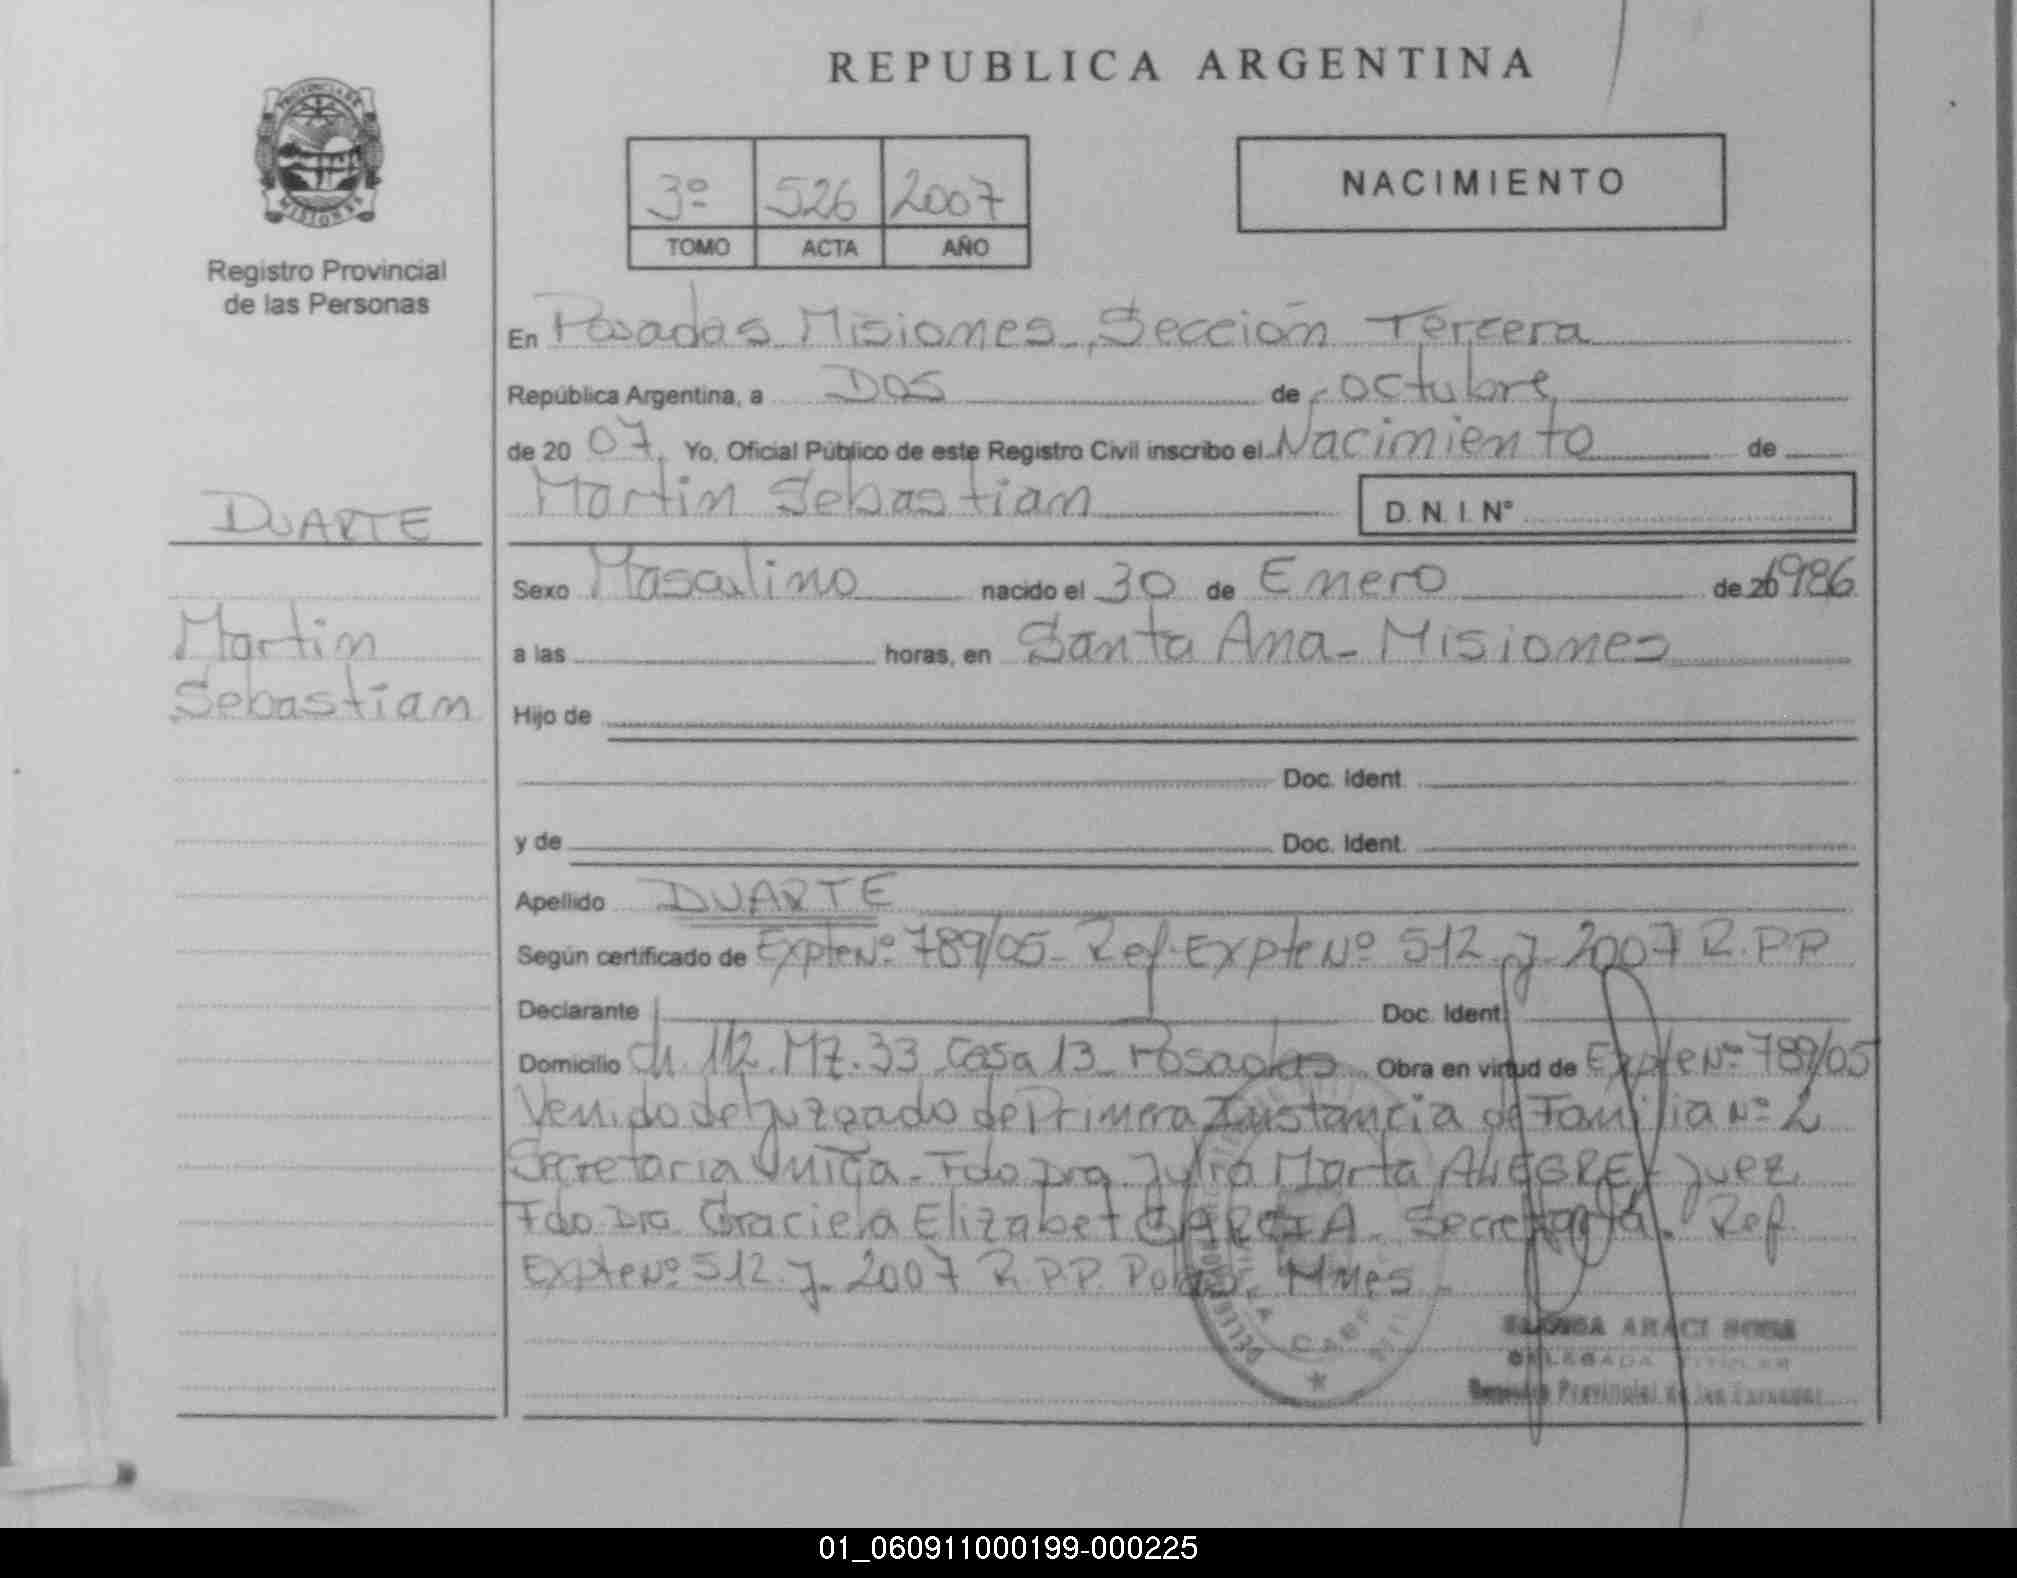 REPUBLICA ARGENTINA
PROVINCIA DE
MISIONES
Registro Provincial
de las Personas
3º 526 2007
TOMO ACTA AÑO
NACIMIENTO
En Posadas Misiones, Sección Tercera
República Argentina, a Dos de octubre
de 2007. Yo, Oficial Público de este Registro Civil inscribo el Nacimiento de
Martin Sebastian D. N. I. Nº
DUARTE
Martin
Sebastian
Sexo Masculino nacido el 30 de Enero de 20 1986
a las horas, en Santa Ana - Misiones
Hijo de
Doc. Ident.
y de Doc. Ident.
Apellido DUARTE
Según certificado de Expte Nº 789/05 - Ref. Expte Nº 512. J. 2007 R.P.P.
Declarante Doc. Ident.
Domicilio ch. 112. Mz. 33 Casa 13 - Posadas Obra en virtud de Expte Nº 789/05
Venido del Juzgado de Primera Instancia de Familia Nº 2
Secretaria Unica - Fdo Dra. Julia Marta ALEGRE - Juez
Fdo Dra Graciela Elizabet GARCIA - Secretaria. Ref.
Expte Nº 512. J. 2007 R.P.P. Mnes -
ARACI
DELEGADA TITULAR
Registro Provincial de las Personas
01_060911000199-000225